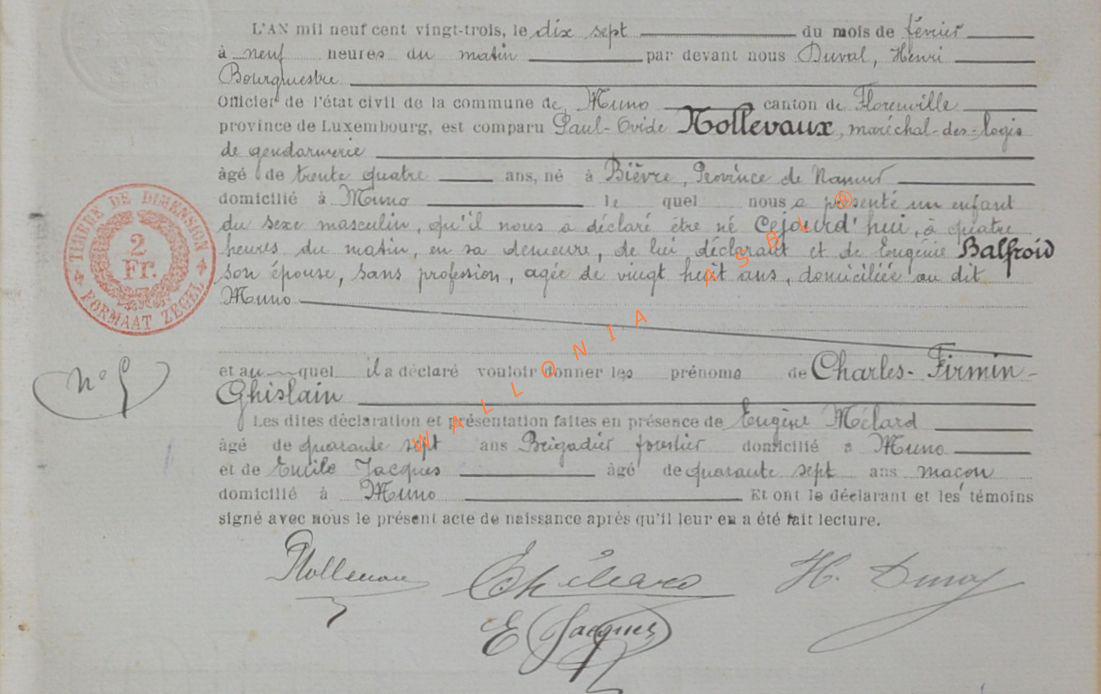 L'AN mil neuf cent vingt-trois, le dix sept du mois de février
à neuf heures du matin par devant nous Duval, Henri
Bourgmestre
Officier de l'état civil de la commune de Muno canton de Florenville
province de Luxembourg, est comparu Paul-Ovide Nollevaux, maréchal-des-logis
de gendarmerie
âgé de trente quatre ans, né à Bièvre, Province de Namur
domicilié à Muno le quel nous a présenté un enfant
du sexe masculin, qu'il nous a déclaré être né Cejourd'hui, à quatre
heures du matin, en sa demeure, de lui déclarant et de Eugénie Balfroid
son épouse, sans profession, agée de vingt huit ans, domiciliée au dit
Muno
TIMBRE DE DIMENSION
2
Fr.
FORMAAT ZEGEL
WALLONIA ASBL ®
et au quel il a déclaré vouloir donner les prénoms de Charles-Firmin-
Ghislain
N° 5
Les dites déclaration et présentation faites en présence de Eugène Mélard
âgé de quarante sept ans Brigadier forestier domicilié à Muno
et de Emile Jacques âgé de quarante sept ans maçon
domicilié à Muno Et ont le déclarant et les témoins
signé avec nous le présent acte de naissance après qu'il leur en a été fait lecture.
Nollevaux H. Duval
E Jacques